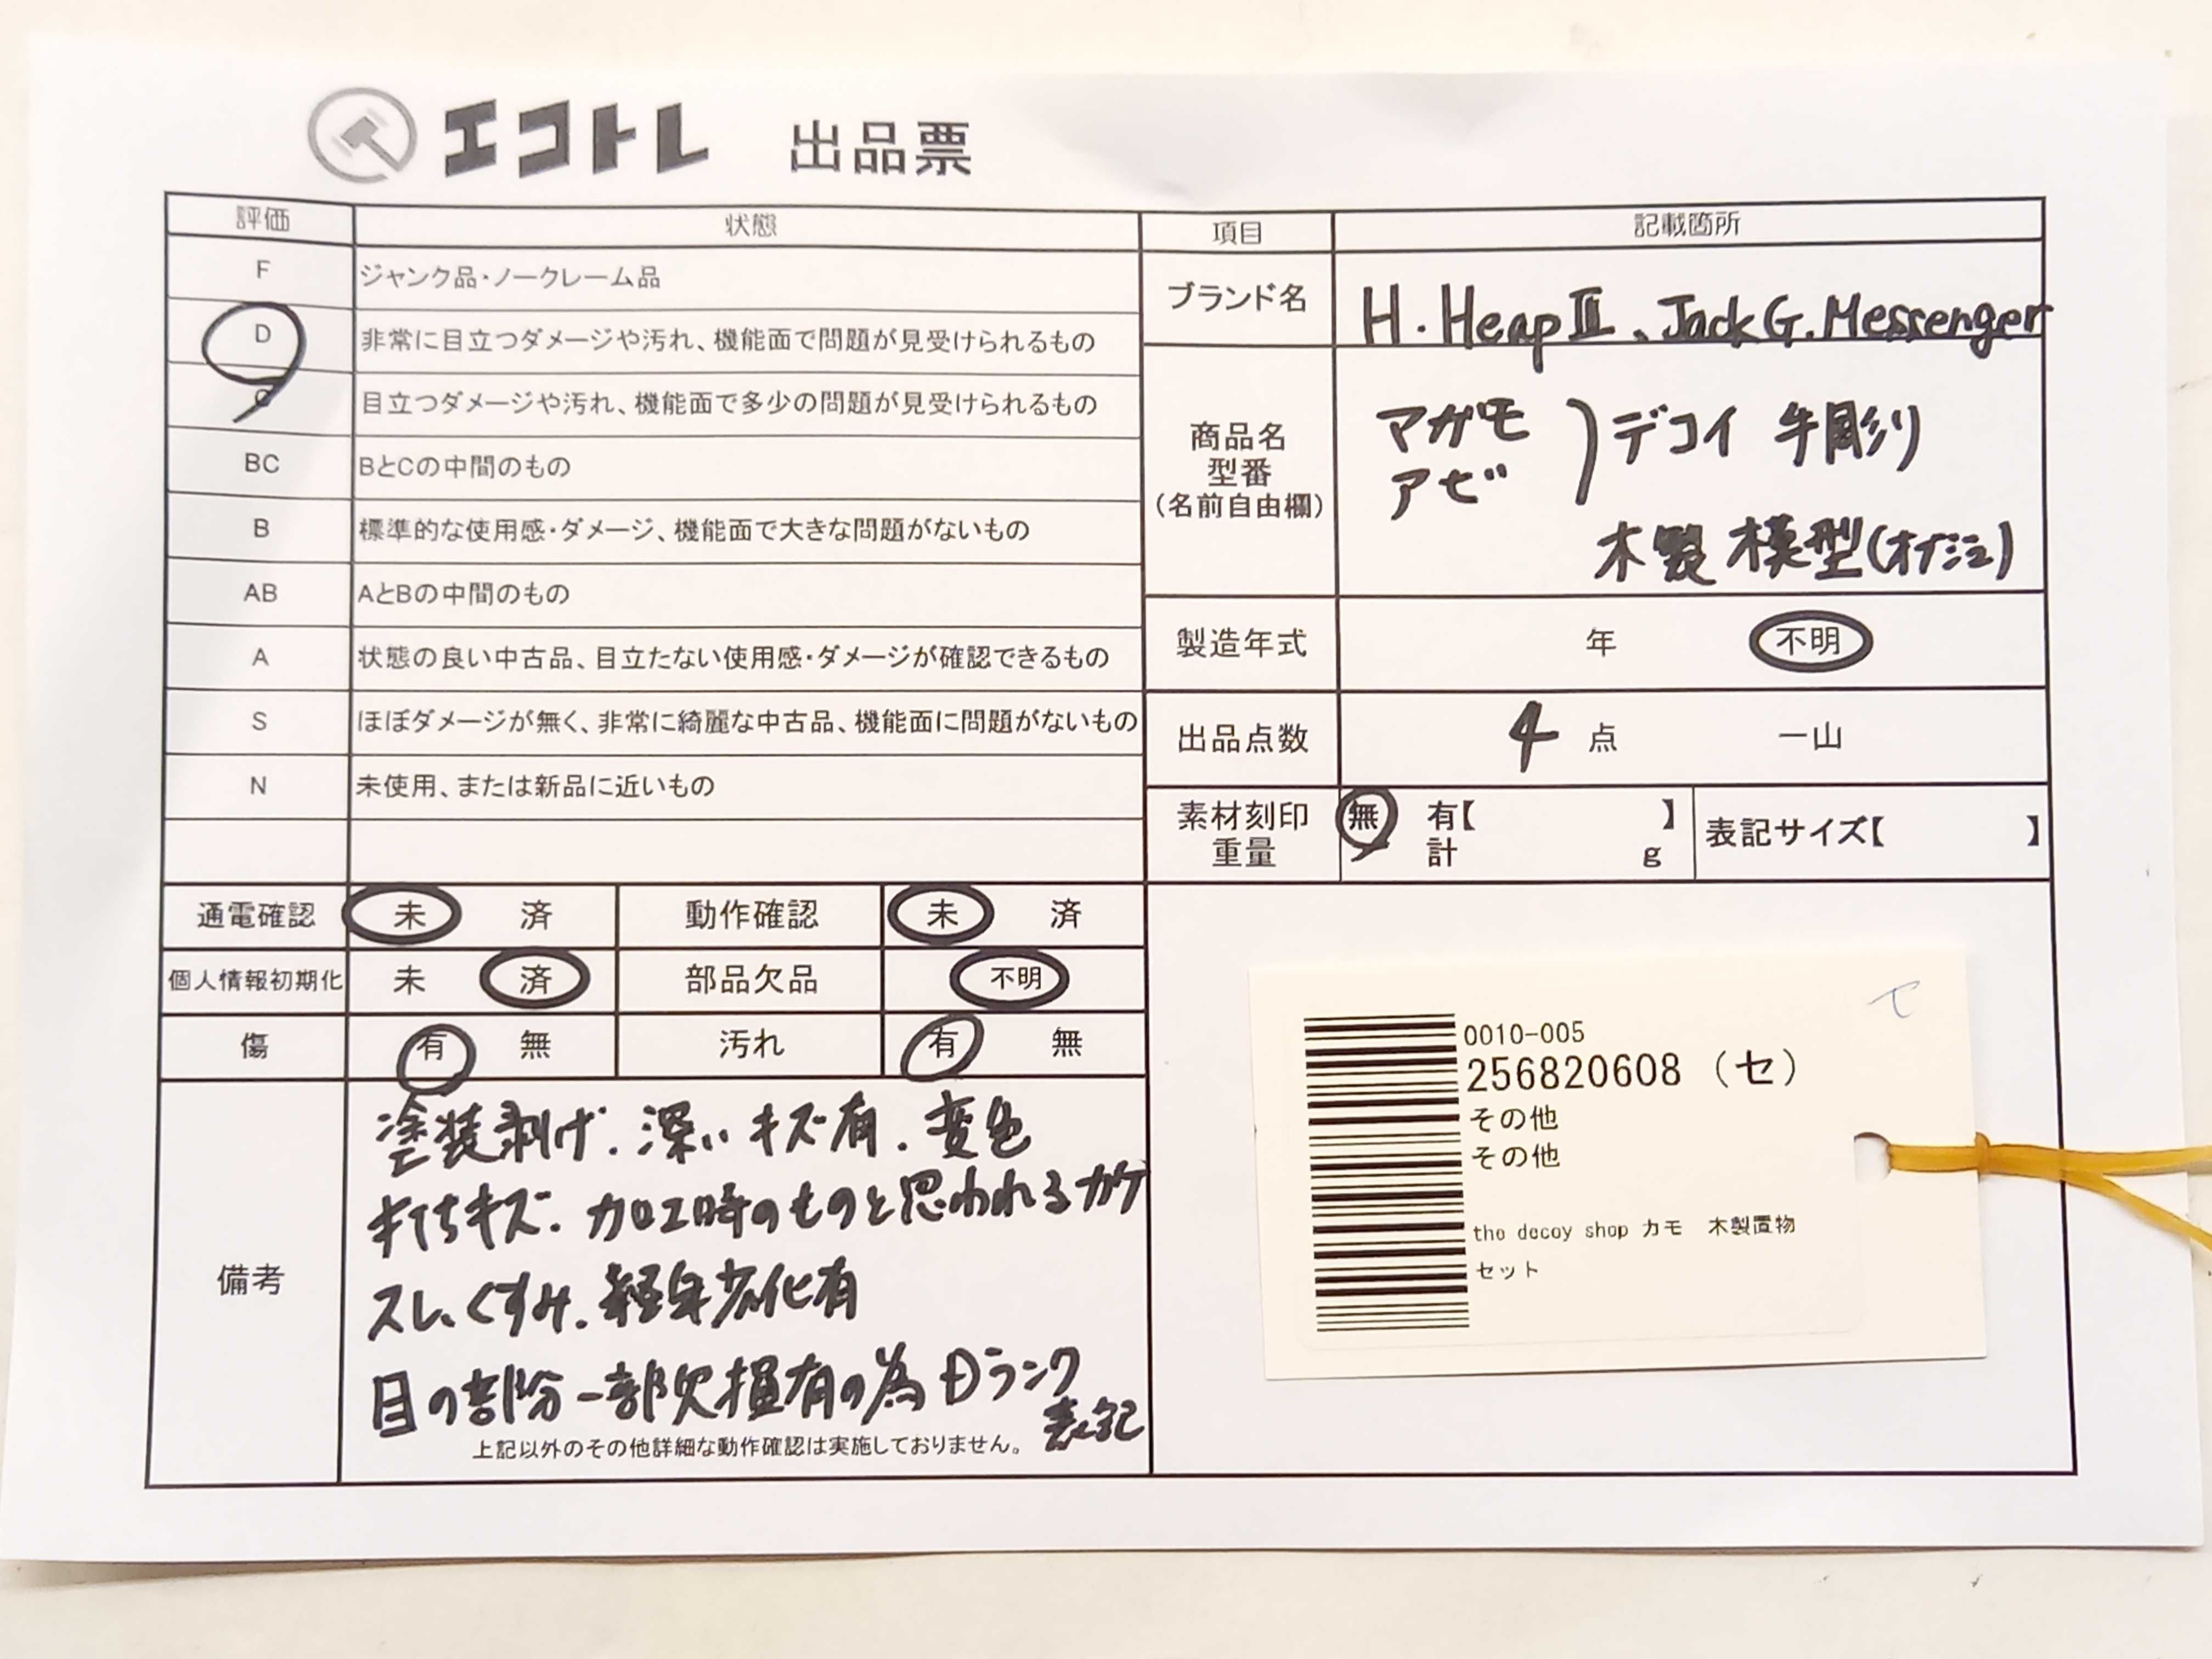 エコトレ 出品票
評価 状態 項目 記載箇所
F ジャンク品・ノークレーム品
D 非常に目立つダメージや汚れ、機能面で問題が見受けられるもの
C 目立つダメージや汚れ、機能面で多少の問題が見受けられるもの
BC BとCの中間のもの
B 標準的な使用感・ダメージ、機能面で大きな問題がないもの
AB AとBの中間のもの
A 状態の良い中古品、目立たない使用感・ダメージが確認できるもの
S ほぼダメージが無く、非常に綺麗な中古品、機能面に問題がないもの
N 未使用、または新品に近いもの
ブランド名 H.HeapⅢ、JackG.Messenger
商品名
型番
(名前自由欄)
マガモ
アビ
)デコイ 手彫り
木製 模型(オブジェ)
製造年式 年 不明
出品点数 4 点 一山
素材刻印 無 有【 】 表記サイズ【 】
重量 計 g
通電確認 未 済 動作確認 未 済
個人情報初期化 未 済 部品欠品 不明
傷 有 無 汚れ 有 無
備考
塗装剥げ.深いキズ有.変色
打ちキズ.加工時のものと思われるカケ
スレ、くすみ.経年劣化有
目の部分一部欠損有の為Dランク
表記
上記以外のその他詳細な動作確認は実施しておりません。
0010-005
256820608 (セ)
その他
その他
the decoy shop カモ 木製置物
セット
て